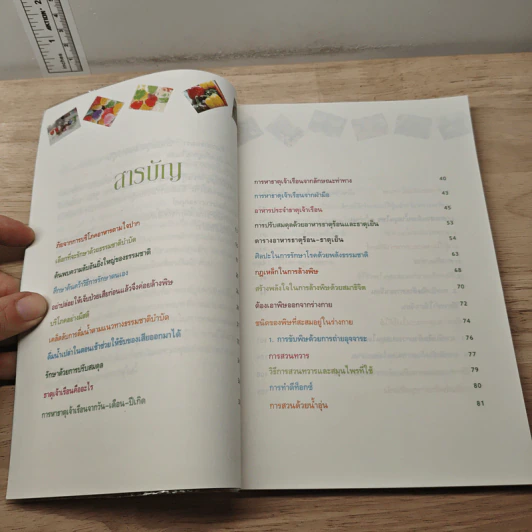 สารบัญ
ภัยจากการบริโภคอาหารตามใจปาก
เลือกที่จะรักษาด้วยธรรมชาติบำบัด
ค้นพบความลับอันยิ่งใหญ่ของธรรมชาติ
ศึกษาค้นคว้าวิธีการรักษาตนเอง
อย่าปล่อยให้เจ็บป่วยเสียก่อนแล้วจึงค่อยล้างพิษ
บริโภคอย่างมีสติ
เคล็ดลับการดื่มน้ำตามแนวทางธรรมชาติบำบัด
ดื่มน้ำเปล่าในตอนเช้าช่วยให้ขับของเสียออกมาได้
รักษาด้วยการปรับสมดุล
ธาตุเจ้าเรือนคืออะไร
การหาธาตุเจ้าเรือนจากวัน-เดือน-ปีเกิด
การหาธาตุเจ้าเรือนจากลักษณะท่าทาง 40
การหาธาตุเจ้าเรือนจากฝ่ามือ 43
อาหารประจำธาตุเจ้าเรือน 45
การปรับสมดุลด้วยอาหารธาตุร้อนและธาตุเย็น 53
ตารางอาหารธาตุร้อน-ธาตุเย็น 54
ศิลปะในการรักษาโรคด้วยพลังธรรมชาติ 63
กฎเหล็กในการล้างพิษ 68
สร้างพลังใจในการล้างพิษด้วยสมาธิจิต 70
ต้องเอาพิษออกจากร่างกาย 72
ชนิดของพิษที่สะสมอยู่ในร่างกาย 74
1. การขับพิษด้วยการถ่ายอุจจาระ 76
การสวนทวาร 77
วิธีการสวนทวารและสมุนไพรที่ใช้ 79
การทำดีท็อกซ์ 80
การสวนด้วยน้ำอุ่น 81